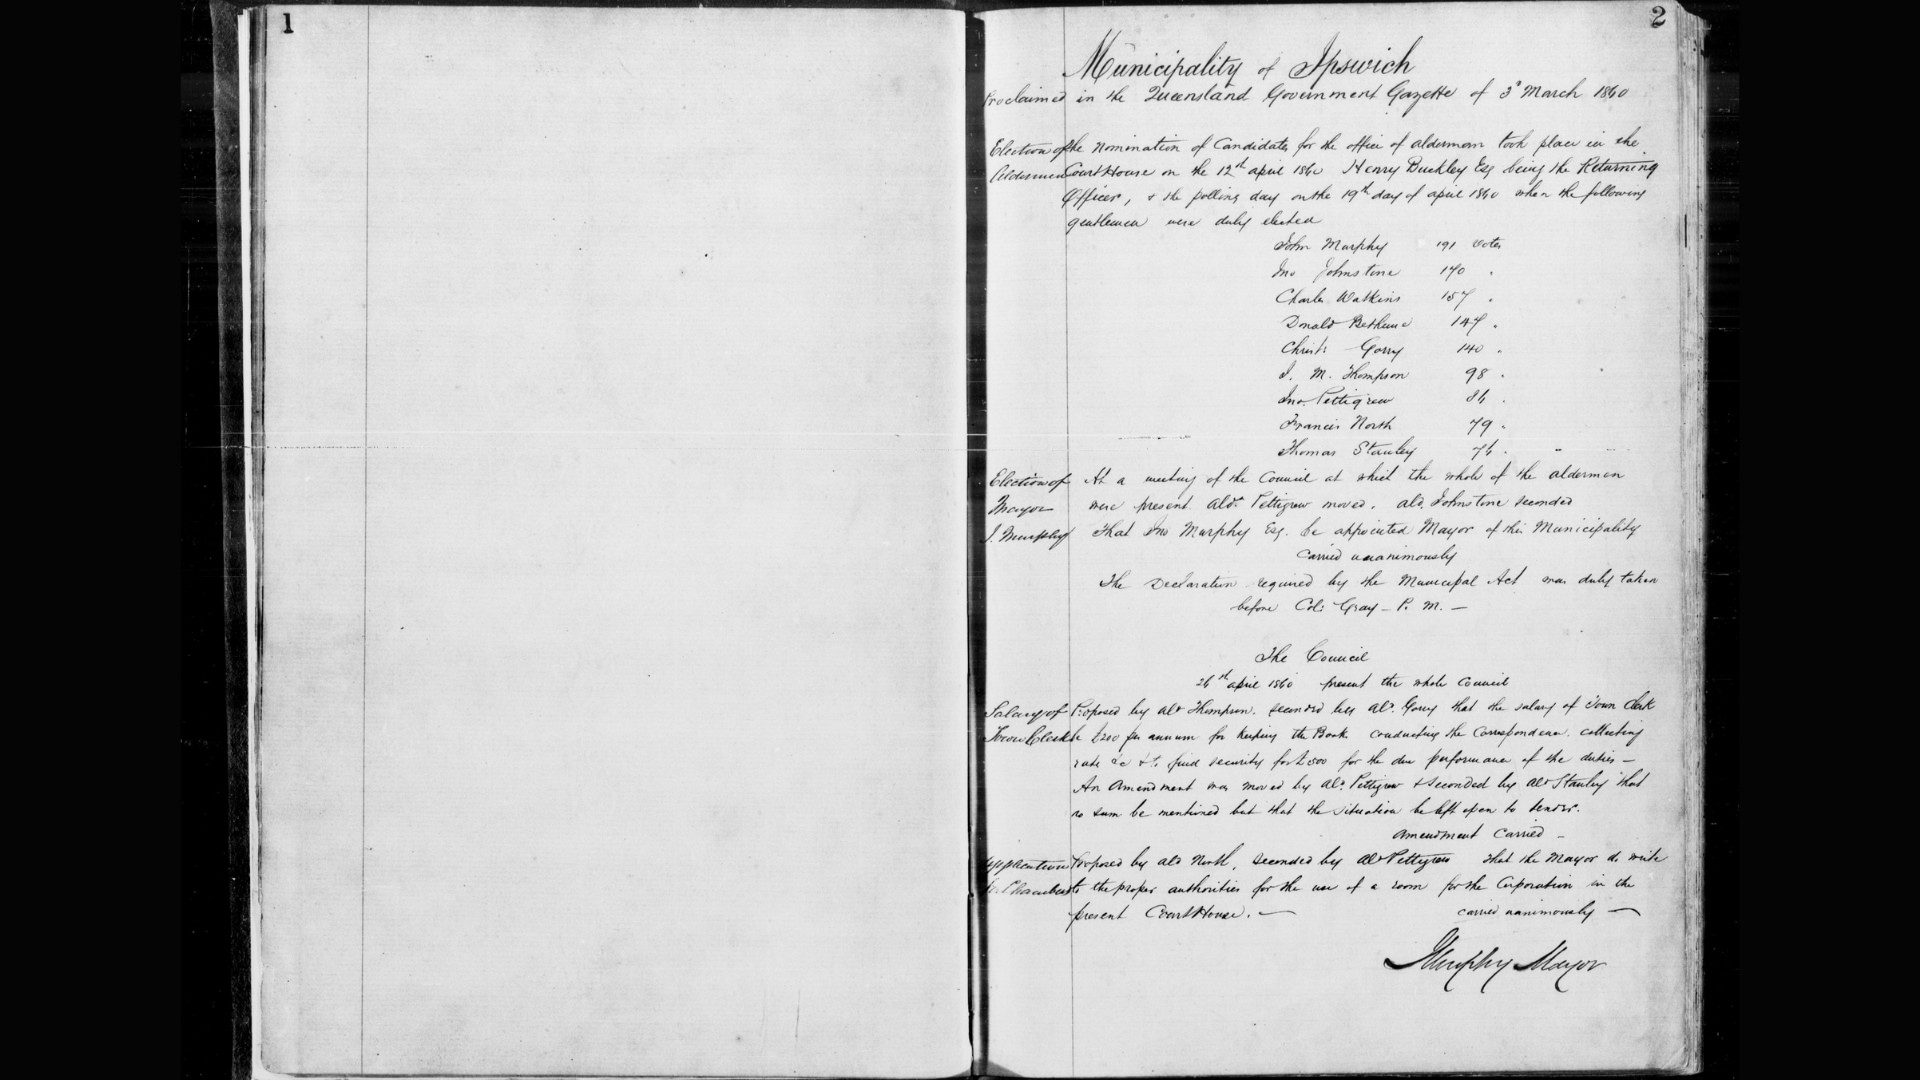 1
2
Municipality of Ipswich
Proclaimed in the Queensland Government Gazette of 3d March 1860
Election of Aldermen
The nomination of Candidates for the office of alderman took place in the
Court House on the 12th april 1860 Henry Buckley Esq being the Returning
Officer, & the polling day on the 19th day of april 1860 when the following
gentlemen were duly elected
John Murphy 191 votes
Jno Johnstone 170 "
Charles Watkins 157 "
Donald Bethune 147 "
Christr Gorry 140 "
J. M. Thompson 98 "
Jno. Pettigrew 86 "
Francis North 79 "
Thomas Stanley 76 "
Election of
Mayor
J. Murphy
At a meeting of the Council at which the whole of the aldermen
were present Aldn Pettigrew moved, ald. Johnstone seconded
That Jno Murphy Esq. be appointed Mayor of this Municipality
Carried unanimously
The Declaration required by the Municipal Act was duly taken
before Col: Gray – P. M. –
The Council
26th april 1860 present the whole Council
Salary of
Town Clerk
Proposed by Aldn Thompson. seconded by Aldn. Gorry that the salary of Town Clerk
be £200 per annum for keeping the Book conducting the Correspondence collecting
rate &c & to find security for £500 for the due performance of the duties –
An Amendment was moved by Aldn. Pettigrew & seconded by Aldn Stanley that
no sum be mentioned but that the situation be left open to tender.
Amendment Carried –
Application
for Chambers
Proposed by ald North, seconded by Aldn Pettigrew that the Mayor do write
to the proper authorities for the use of a room for the Corporation in the
present Court House. –
carried unanimously –
JMurphy Mayor